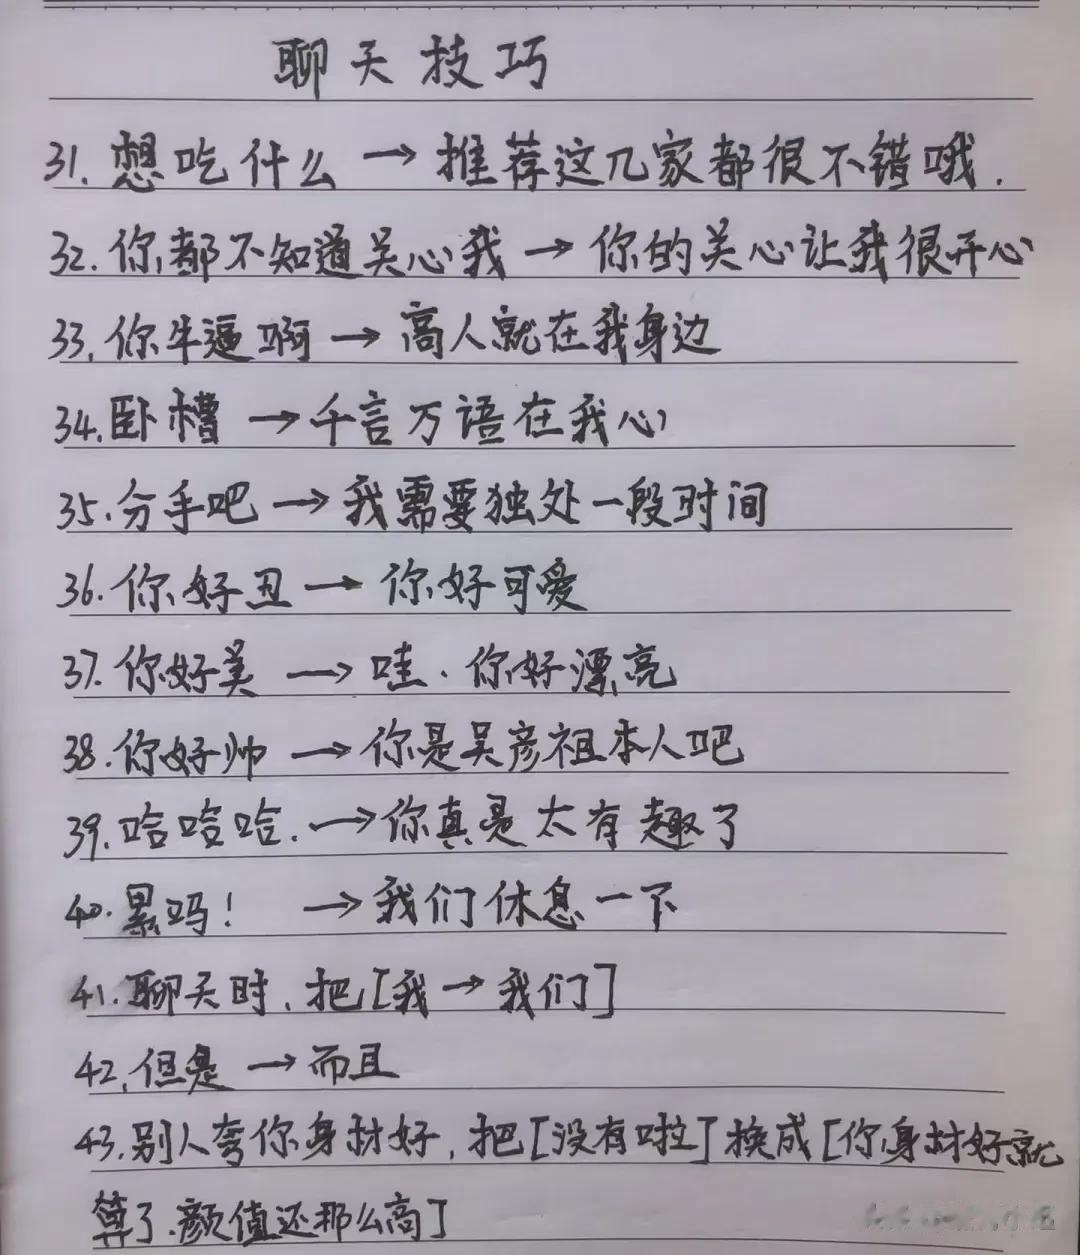 聊天技巧
31. 想吃什么 → 推荐这几家都很不错哦.
32. 你都不知道关心我 → 你的关心让我很开心
33. 你牛逼啊 → 高人就在我身边
34. 卧槽 → 千言万语在我心
35. 分手吧 → 我需要独处一段时间
36. 你好丑 → 你好可爱
37. 你好美 → 哇. 你好漂亮
38. 你好帅 → 你是吴彦祖本人吧
39. 哈哈哈. → 你真是太有趣了
40. 累吗! → 我们休息一下
41. 聊天时, 把[我 → 我们]
42. 但是 → 而且
43. 别人夸你身材好, 把[没有啦]换成[你身材好就
算了.颜值还那么高]